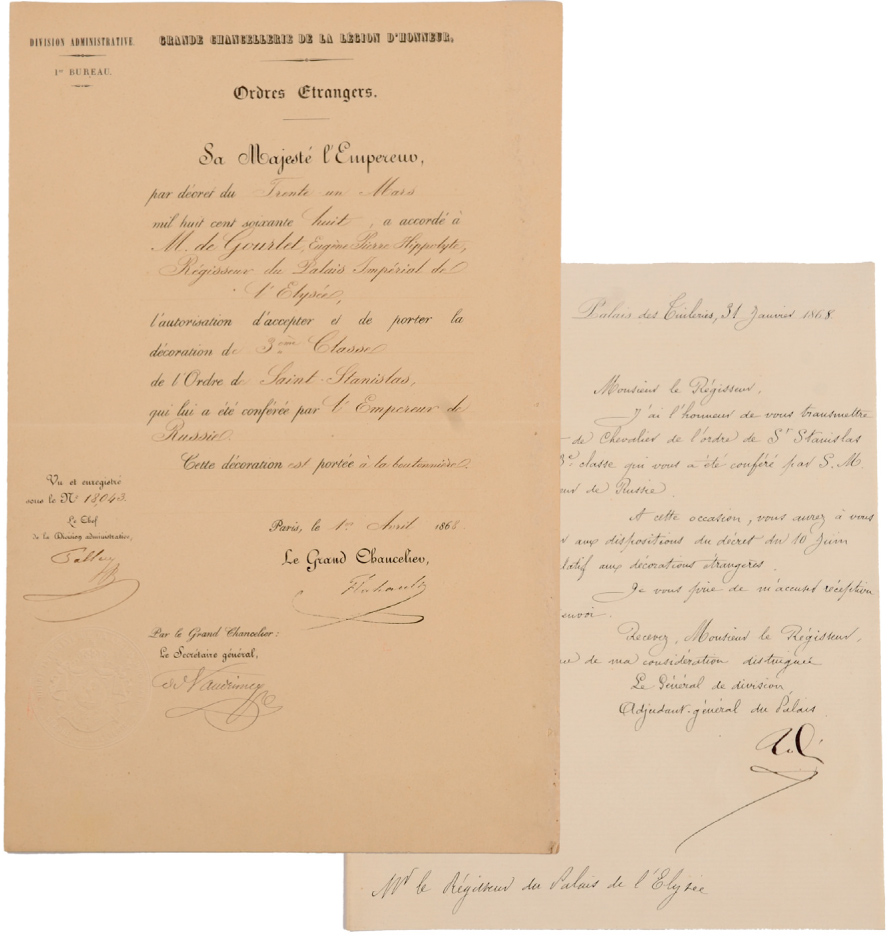 DIVISION ADMINISTRATIVE.
1er BUREAU.
GRANDE CHANCELLERIE DE LA LÉGION D'HONNEUR.
Ordres Etrangers.
Sa Majesté l'Empereur,
par décret du Trente un Mars
mil huit cent soixante huit, a accordé à
M. de Gourlet, Eugène Pierre Hippolyte,
Régisseur du Palais Impérial de
l'Elysée,
l'autorisation d'accepter et de porter la
décoration de 3ème Classe
de l'Ordre de Saint-Stanislas,
qui lui a été conférée par l'Empereur de
Russie.
Cette décoration est portée à la boutonnière.
Vu et enregistré
sous le No 18,043.
Le Chef
de la Division administrative,
Paris, le 1er Avril 1868.
Le Grand Chancelier,
Flahault
Par le Grand Chancelier:
Le Secrétaire général,
Palais des Tuileries, 31 Janvier 1868
Monsieur le Régisseur,
J'ai l'honneur de vous transmettre
de Chevalier de l'ordre de St Stanislas
3e classe qui vous a été conféré par S. M.
eur de Russie.
A cette occasion, vous aurez à vous
aux dispositions du décret du 10 Juin
latif aux décorations étrangères.
Je vous prie de m'accuser réception
envoi.
Recevez, Monsieur le Régisseur,
de ma considération distinguée
Le Général de division,
Adjudant-général du Palais
Mr le Régisseur du Palais de l'Elysée